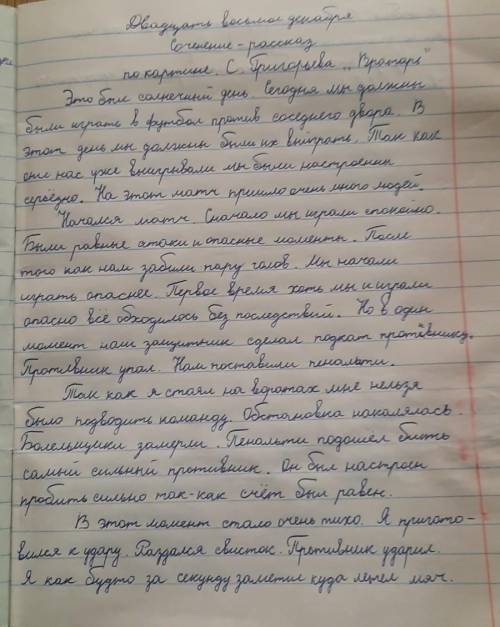 Двадцать восьмое декабря
Сочинение-рассказ
по картине. С. Григорьева „Вратарь"
Это был солнечный день. Сегодня мы должны
были играть в футбол против соседнего двора. В
этот день мы должны были их выиграть. Так как
они нас уже выигрывали мы были настроении
серьёздно. На этот матч пришло очень много людей.
Начался матч. Сначало мы играли спокойно.
Были равные атаки и опасные моменты. После
того как нам забили пару голов. Мы начали
играть опаснее. Первое время хоть мы и играли
опасно всё обходилось без последствий. Но в один
момент наш защитник сделал подкат протевнику.
Протевник упал. Нам поставили пенальти.
Так как я стоял на воротах мне нельзя
было подводить команду. Обстановка накалялась.
Болельщики замерли. Пенальти подошёл бить
самый сильный противник. Он был настроен
пробить сильно так-как счёт был равен.
В этот момент стало очень тихо. Я пригото-
вился к удару. Раздался свисток. Противник ударил.
Я как будто за секунду заметил куда летел мяч.